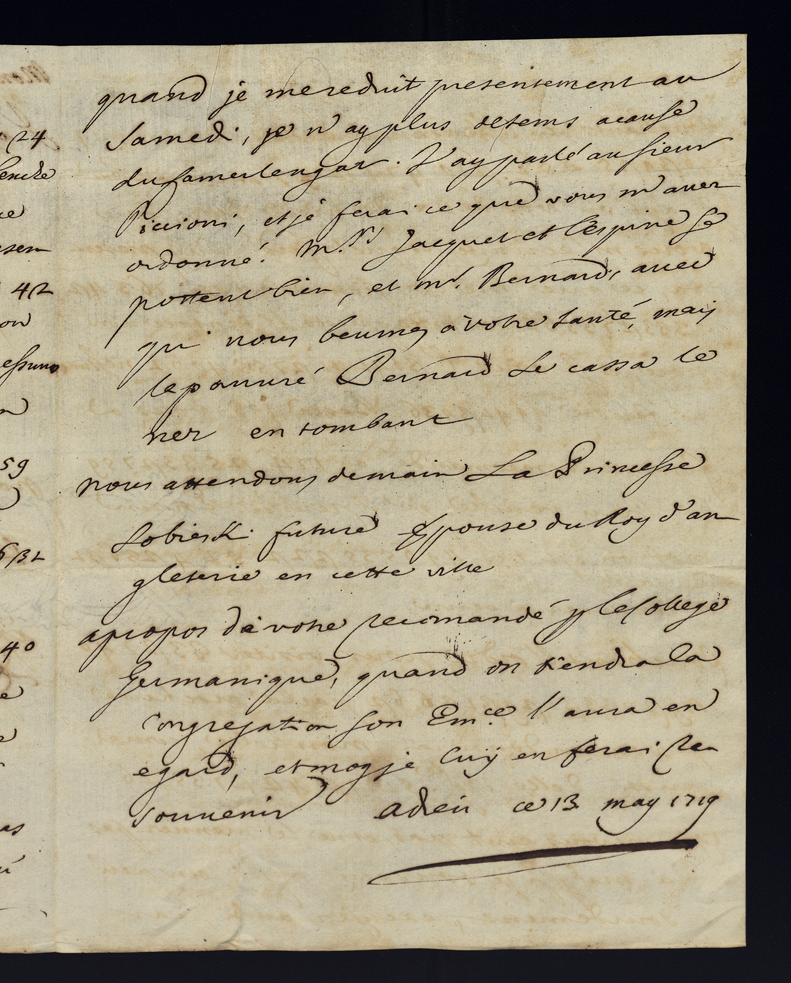 quand je me reduit presentement au
Samedi, je n'ay plus de tems a cause
du Camerlengat. J'ay parlé au Sieur
Piccioni, et je ferai ce que vous m'avez
ordonné. M.rs Jacquet et l'Espine se
portent bien, et mr. Bernard, avec
qui nous beumes a votre santé, mais
le pauvré Bernard se cassa le
nez en tombant
nous attendons demain La Princesse
Sobieski future Epouse du Roy d'an
gleterre en cette ville
apropos da votre recomandé p le College
Germanique, quand on tiendra la
Congregation son Em.ce l'aura en
egard, et moy je luy en ferai Re
souvenir adieu ce 13 may 1719
24
42
59
40